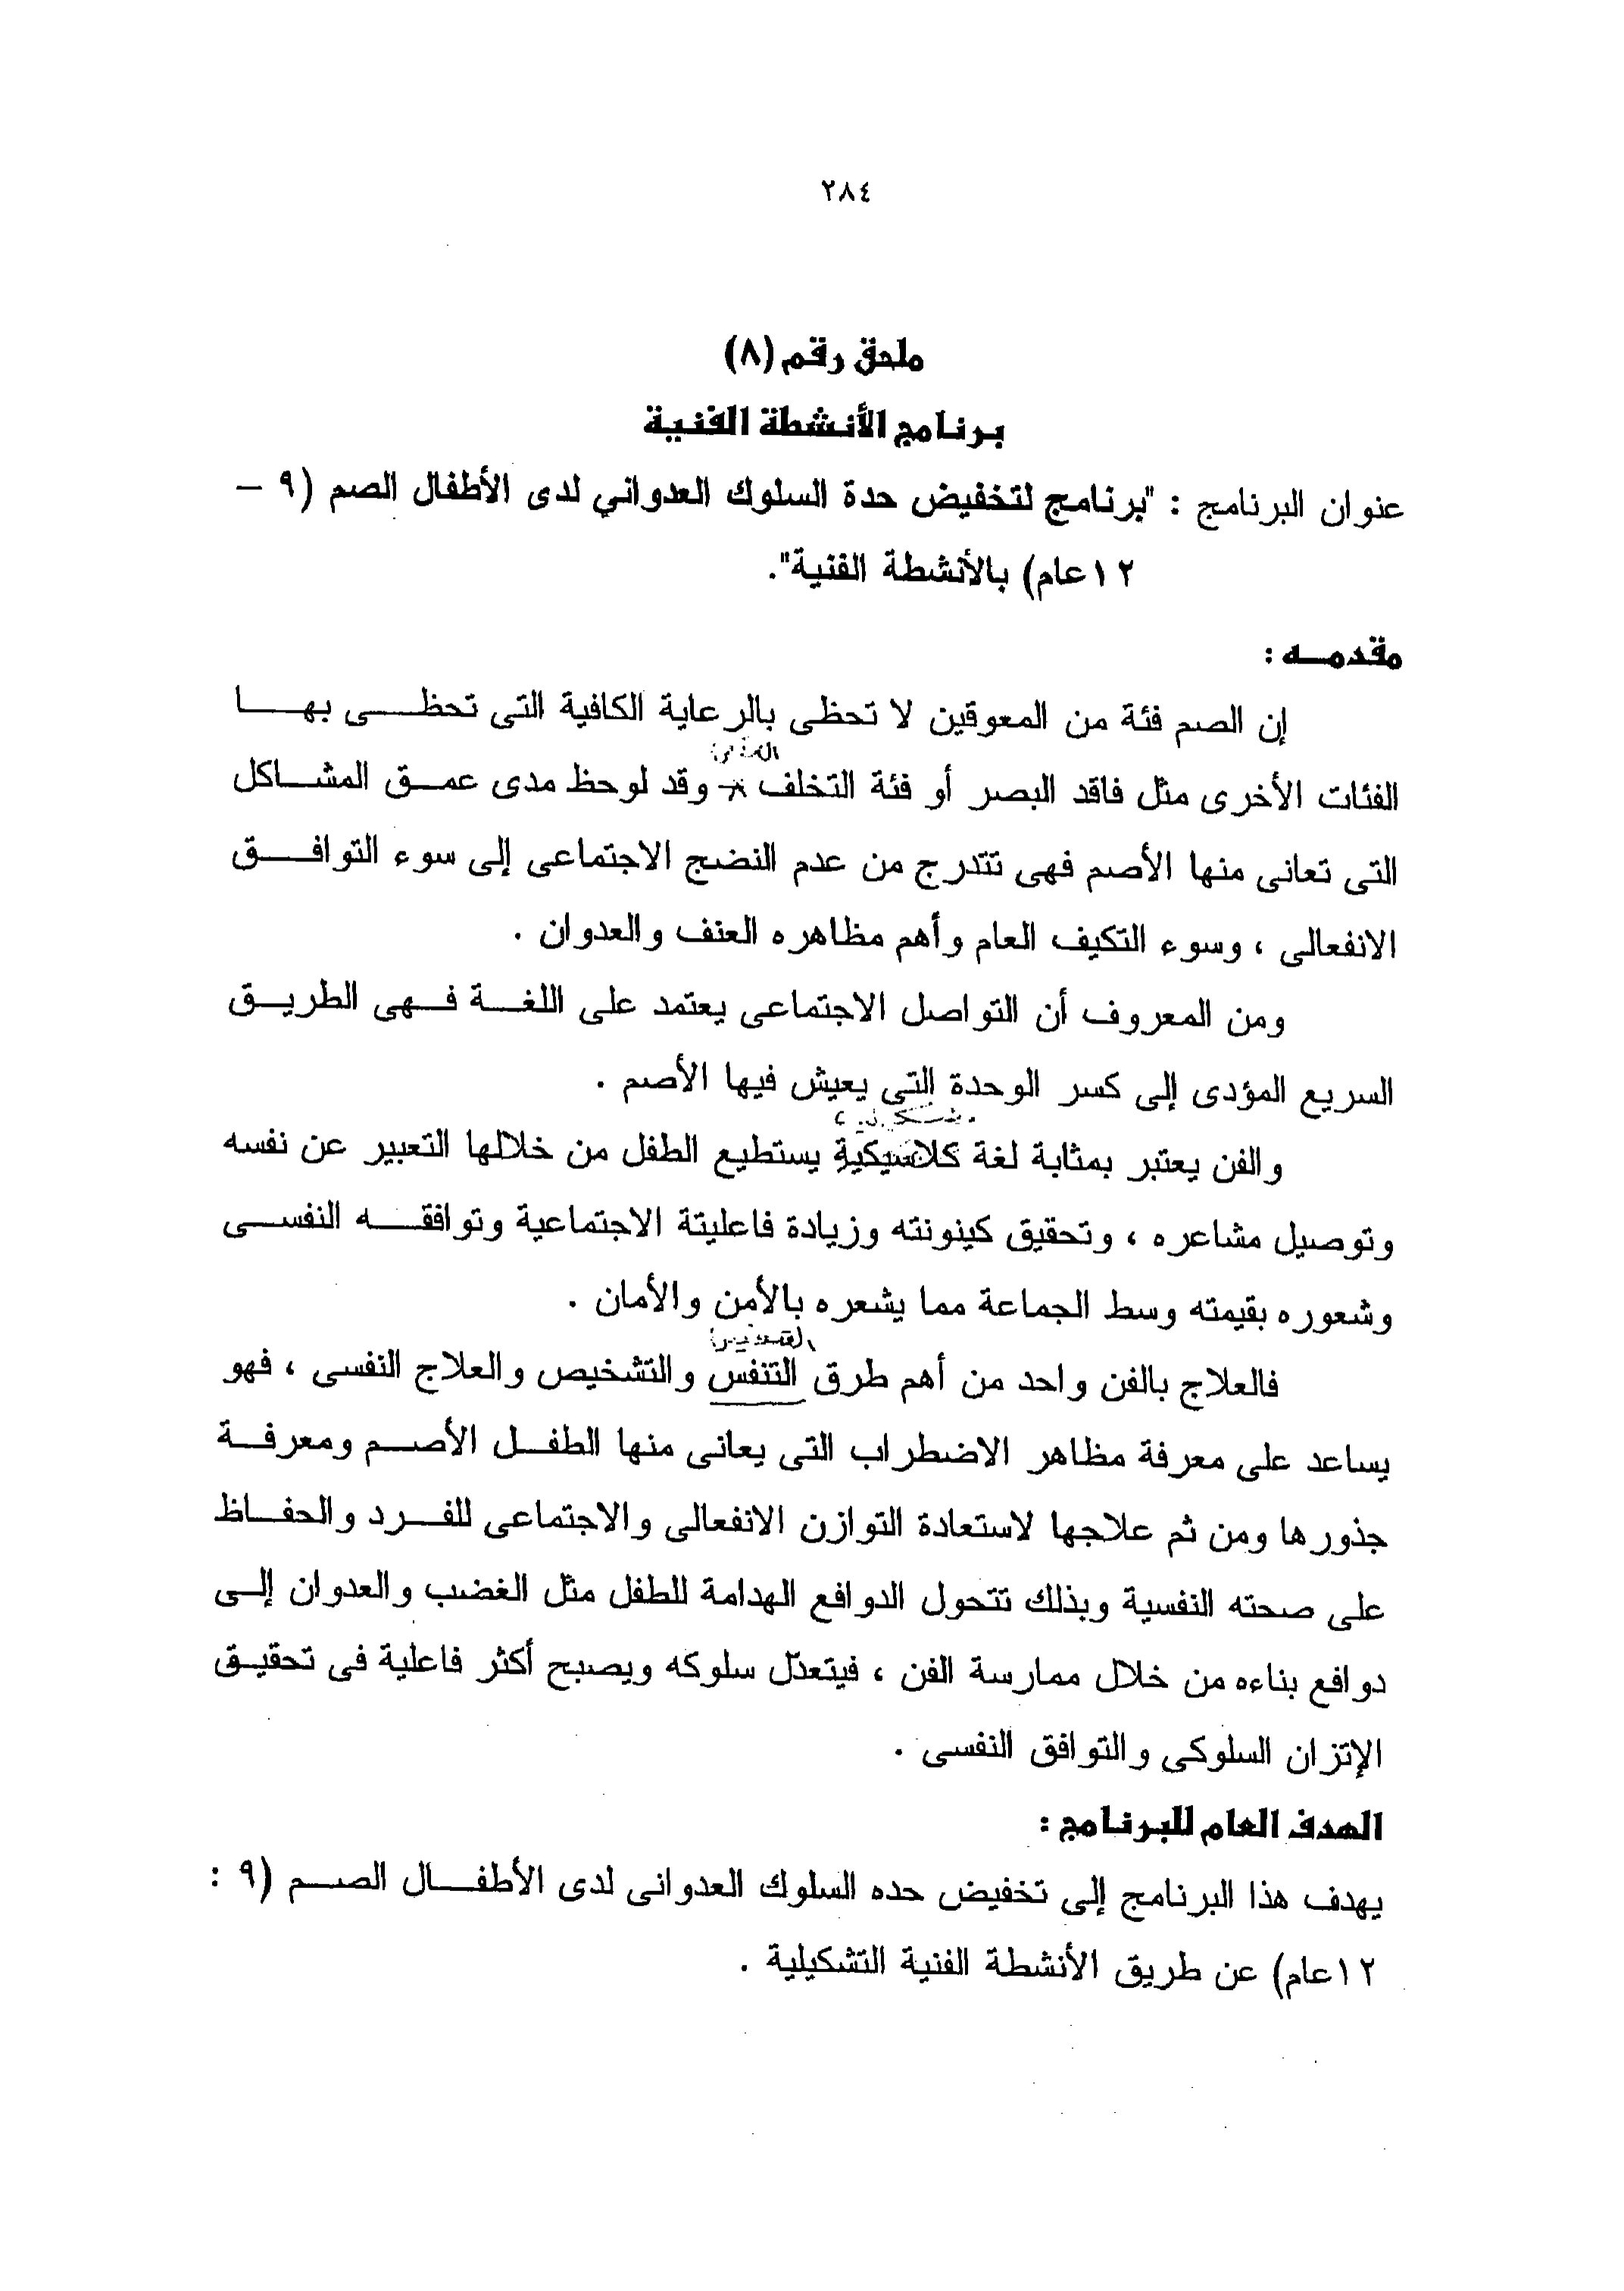 ٢٨٤
ملحق رقم (٨)
برنامج الأنشطة الفنية
عنوان البرنامج : "برنامج لتخفيض حدة السلوك العدواني لدى الأطفال الصم (٩ –
١٢عام) بالأنشطة الفنية".
مقدمه :
إن الصم فئة من المعوقين لا تحظى بالرعاية الكافية التى تحظى بها
الفئات الأخرى مثل فاقد البصر أو فئة التخلف وقد لوحظ مدى عمق المشاكل
التى تعانى منها الأصم فهى تتدرج من عدم النضج الاجتماعى إلى سوء التوافق
الانفعالى ، وسوء التكيف العام وأهم مظاهره العنف والعدوان .
ومن المعروف أن التواصل الاجتماعى يعتمد على اللغة فهى الطريق
السريع المؤدى إلى كسر الوحدة التى يعيش فيها الأصم .
والفن يعتبر بمثابة لغة كلاسيكية يستطيع الطفل من خلالها التعبير عن نفسه
وتوصيل مشاعره ، وتحقيق كينونته وزيادة فاعليتة الاجتماعية وتوافقه النفسى
وشعوره بقيمته وسط الجماعة مما يشعره بالأمن والأمان .
فالعلاج بالفن واحد من أهم طرق التنفس والتشخيص والعلاج النفسى ، فهو
يساعد على معرفة مظاهر الاضطراب التى يعانى منها الطفل الأصم ومعرفة
جذورها ومن ثم علاجها لاستعادة التوازن الانفعالى والاجتماعى للفرد والحفاظ
على صحته النفسية وبذلك تتحول الدوافع الهدامة للطفل مثل الغضب والعدوان إلى
دوافع بناءه من خلال ممارسة الفن ، فيتعدّل سلوكه ويصبح أكثر فاعلية فى تحقيق
الإتزان السلوكى والتوافق النفسى .
الهدف العام للبرنامج :
يهدف هذا البرنامج إلى تخفيض حده السلوك العدوانى لدى الأطفال الصم (٩ :
١٢عام) عن طريق الأنشطة الفنية التشكيلية .